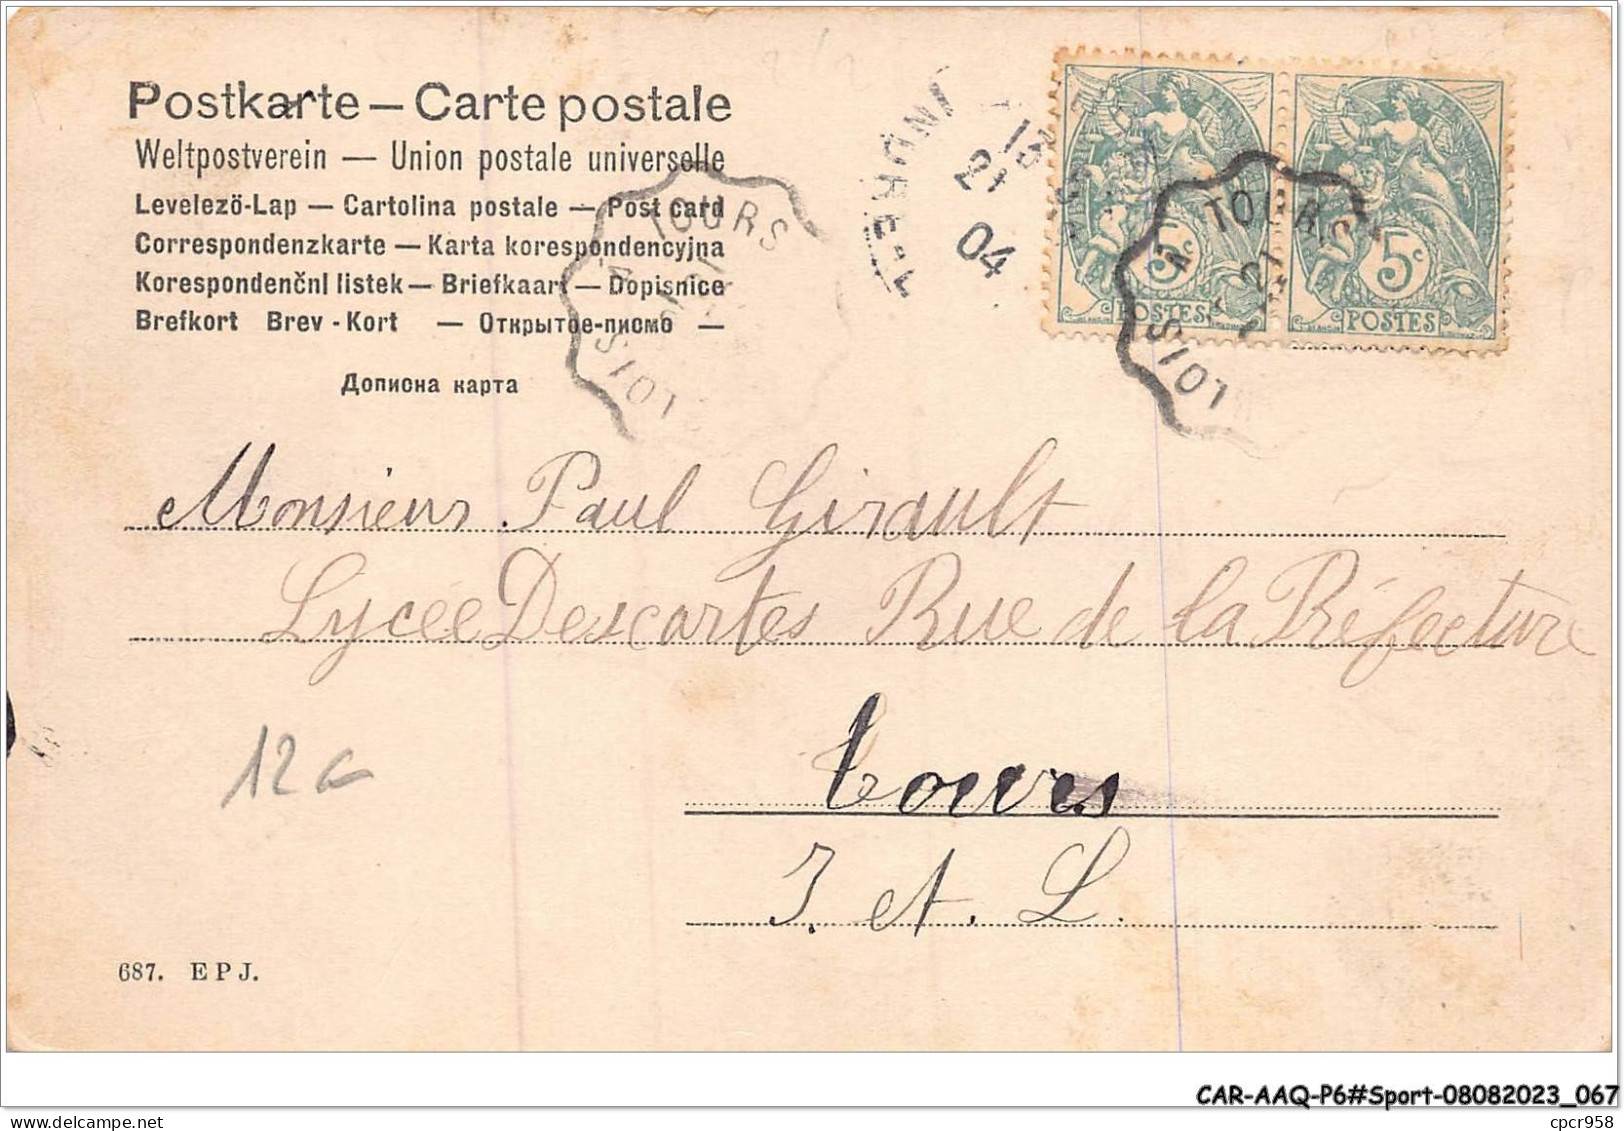 Postkarte — Carte postale
Weltpostverein — Union postale universelle
Levelezö-Lap — Cartolina postale — Post card
Correspondenzkarte — Karta korespondencyjna
Korespondenčnl listek — Briefkaart — Dopisnice
Brefkort Brev - Kort — Открытое-писмо —
Дописна карта
13
21
04
TOURS
LOIS
TOURS
21
LOIS
5c
POSTES
5c
POSTES
Monsieur Paul Girault
Lycée Descartes Rue de la Préfecture
Tours
I et L.
12
687. E P J.
CAR-AAQ-P6#Sport-08082023_067
cpcr958